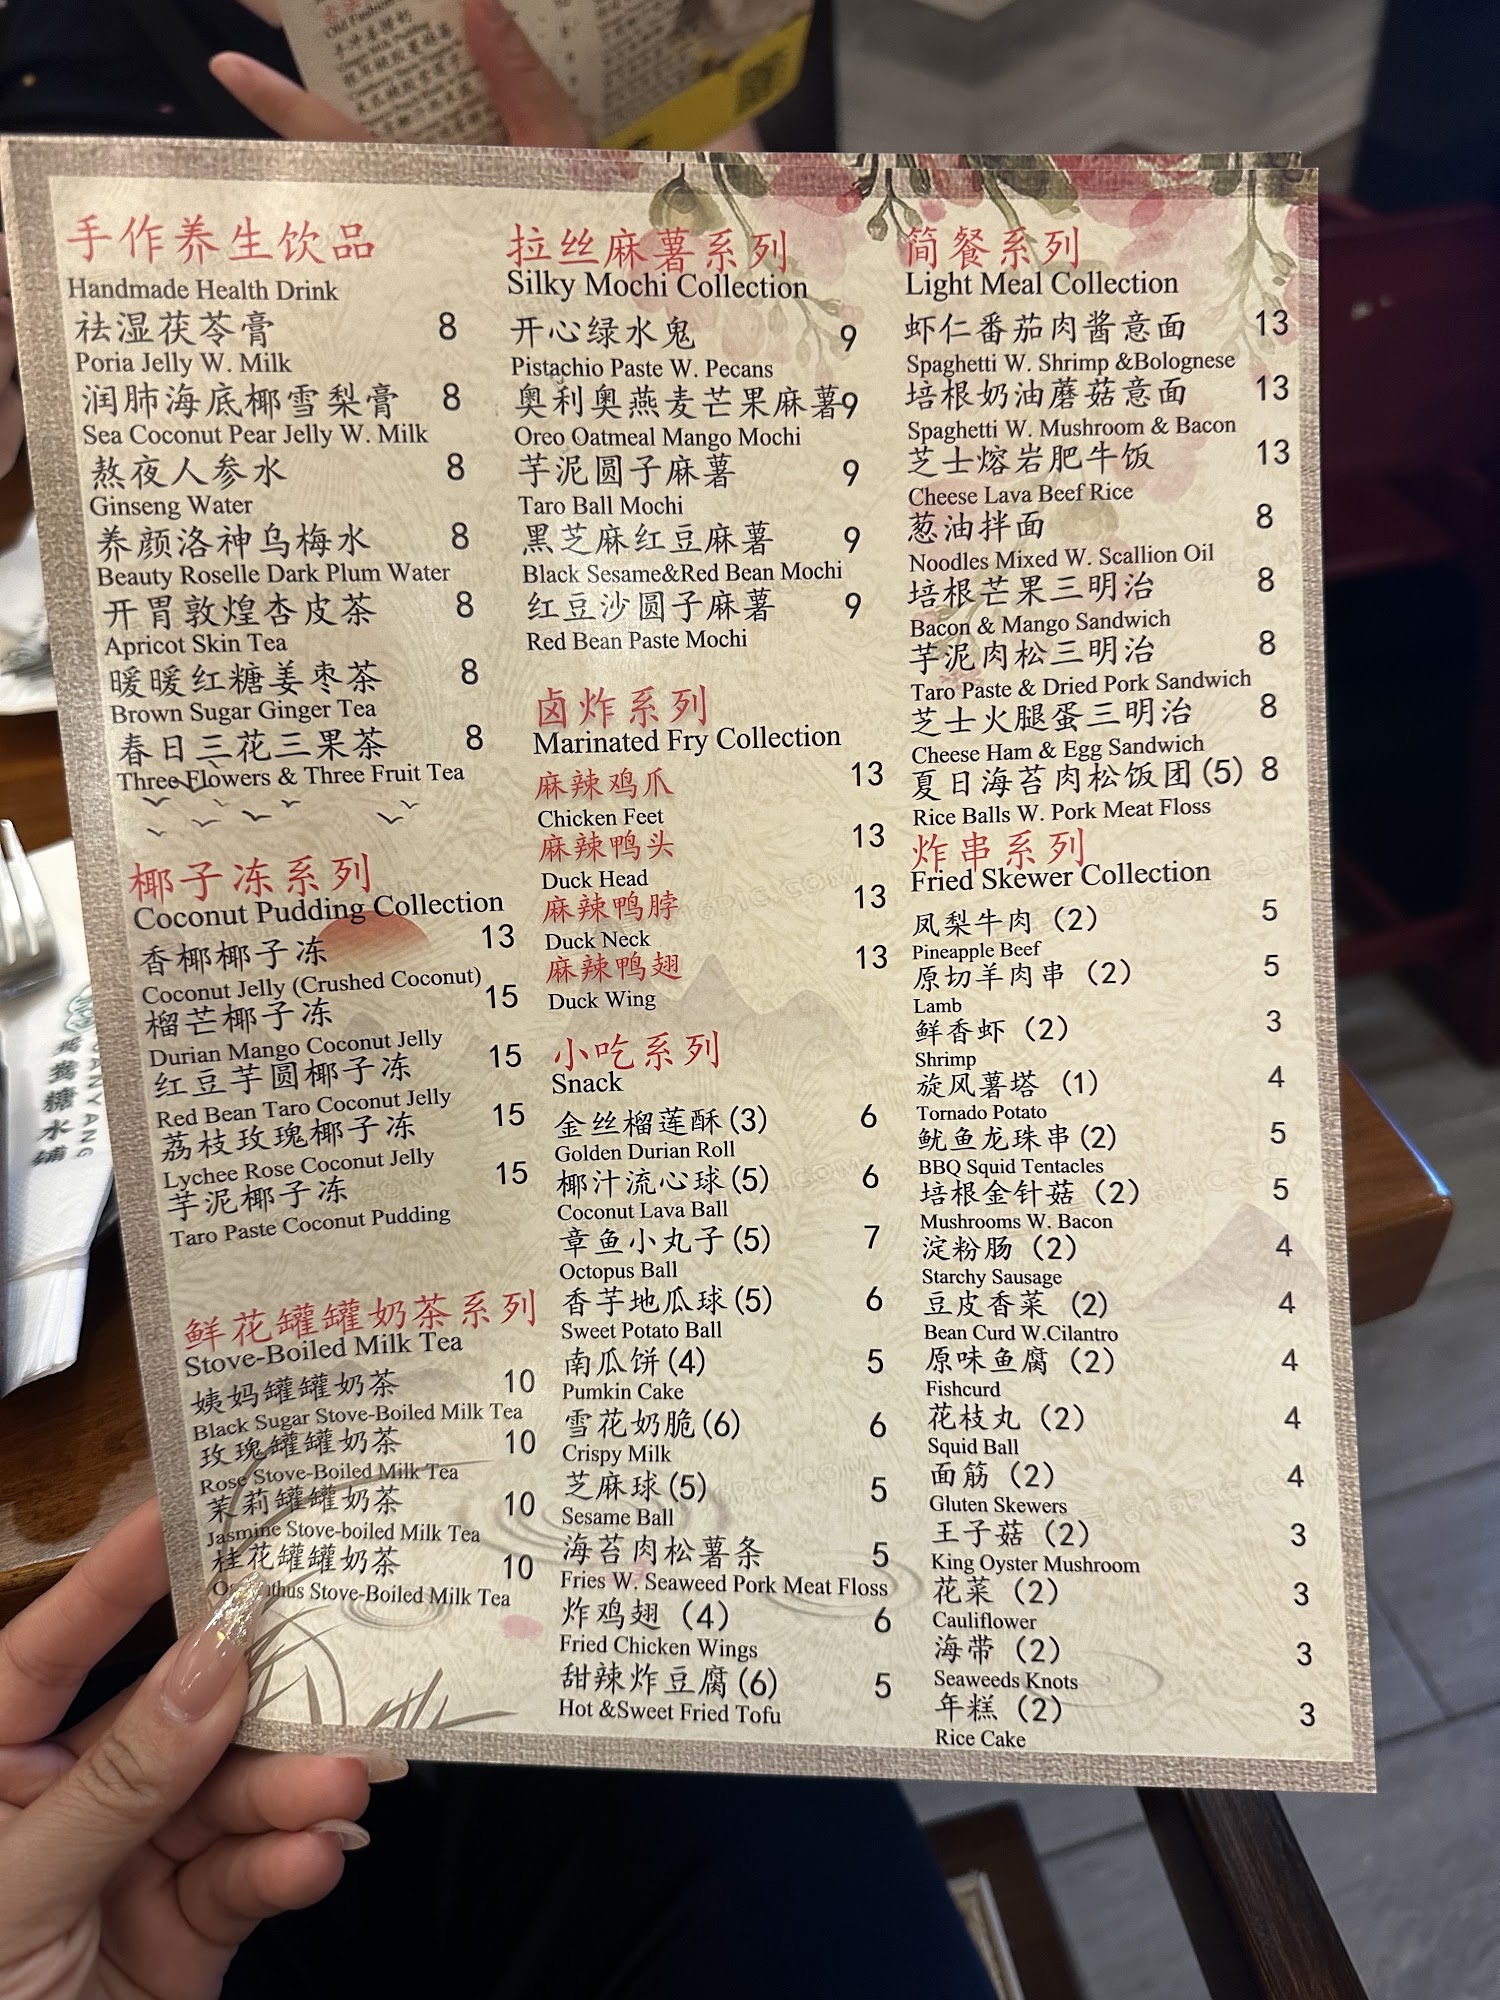 Old Fashion
手作养生饮品
Handmade Health Drink
祛湿茯苓膏 8
Poria Jelly W. Milk
润肺海底椰雪梨膏 8
Sea Coconut Pear Jelly W. Milk
熬夜人参水 8
Ginseng Water
养颜洛神乌梅水 8
Beauty Roselle Dark Plum Water
开胃敦煌杏皮茶 8
Apricot Skin Tea
暖暖红糖姜枣茶 8
Brown Sugar Ginger Tea
春日三花三果茶 8
Three Flowers & Three Fruit Tea
椰子冻系列
Coconut Pudding Collection
香椰椰子冻 13
Coconut Jelly (Crushed Coconut)
榴芒椰子冻 15
Durian Mango Coconut Jelly
红豆芋圆椰子冻 15
Red Bean Taro Coconut Jelly
荔枝玫瑰椰子冻 15
Lychee Rose Coconut Jelly
芋泥椰子冻 15
Taro Paste Coconut Pudding
鲜花罐罐奶茶系列
Stove-Boiled Milk Tea
姨妈罐罐奶茶 10
Black Sugar Stove-Boiled Milk Tea
玫瑰罐罐奶茶 10
Rose Stove-Boiled Milk Tea
茉莉罐罐奶茶 10
Jasmine Stove-boiled Milk Tea
桂花罐罐奶茶 10
Stove-Boiled Milk Tea
拉丝麻薯系列
Silky Mochi Collection
开心绿水鬼 9
Pistachio Paste W. Pecans
奥利奥燕麦芒果麻薯 9
Oreo Oatmeal Mango Mochi
芋泥圆子麻薯 9
Taro Ball Mochi
黑芝麻红豆麻薯 9
Black Sesame&Red Bean Mochi
红豆沙圆子麻薯 9
Red Bean Paste Mochi
卤炸系列
Marinated Fry Collection
麻辣鸡爪 13
Chicken Feet
麻辣鸭头 13
Duck Head
麻辣鸭脖 13
Duck Neck
麻辣鸭翅 13
Duck Wing
小吃系列
Snack
金丝榴莲酥(3) 6
Golden Durian Roll
椰汁流心球(5) 6
Coconut Lava Ball
章鱼小丸子(5) 7
Octopus Ball
香芋地瓜球(5) 6
Sweet Potato Ball
南瓜饼(4) 5
Pumkin Cake
雪花奶脆(6) 6
Crispy Milk
芝麻球(5) 5
Sesame Ball
海苔肉松薯条 5
Fries W. Seaweed Pork Meat Floss
炸鸡翅 (4) 6
Fried Chicken Wings
甜辣炸豆腐(6) 5
Hot &Sweet Fried Tofu
简餐系列
Light Meal Collection
虾仁番茄肉酱意面 13
Spaghetti W. Shrimp &Bolognese
培根奶油蘑菇意面 13
Spaghetti W. Mushroom & Bacon
芝士熔岩肥牛饭 13
Cheese Lava Beef Rice
葱油拌面 8
Noodles Mixed W. Scallion Oil
培根芒果三明治 8
Bacon & Mango Sandwich
芋泥肉松三明治 8
Taro Paste & Dried Pork Sandwich
芝士火腿蛋三明治 8
Cheese Ham & Egg Sandwich
夏日海苔肉松饭团(5) 8
Rice Balls W. Pork Meat Floss
炸串系列
Fried Skewer Collection
凤梨牛肉 (2) 5
Pineapple Beef
原切羊肉串 (2) 5
Lamb
鲜香虾 (2) 3
Shrimp
旋风薯塔 (1) 4
Tornado Potato
鱿鱼龙珠串(2) 5
BBQ Squid Tentacles
培根金针菇 (2) 5
Mushrooms W. Bacon
淀粉肠 (2) 4
Starchy Sausage
豆皮香菜 (2) 4
Bean Curd W.Cilantro
原味鱼腐 (2) 4
Fishcurd
花枝丸 (2) 4
Squid Ball
面筋 (2) 4
Gluten Skewers
王子菇 (2) 3
King Oyster Mushroom
花菜 (2) 3
Cauliflower
海带 (2) 3
Seaweeds Knots
年糕 (2) 3
Rice Cake
鸳鸯糖水铺